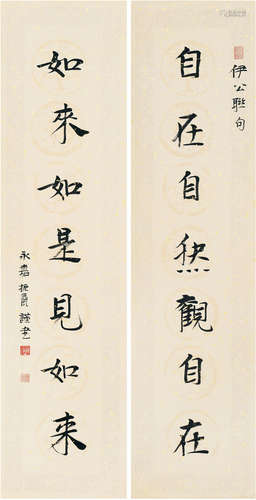 伊公聯句
自在自然觀自在
如來如是見如来
永嘉 謹書